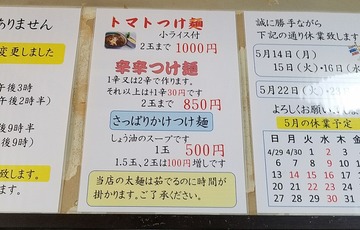 ありません
変更しました
午後3時
午後2時半
午後9時
午後9時半
致します。
します。
トマトつけ麺
小ライス付
2玉まで 1000円
辛辛つけ麺
1辛又は2辛で作ります。
それ以上は+1辛30円です
2玉まで 850円
さっぱりかけつけ麺
しょう油のスープです
1玉 500円
1.5玉、2玉は100円増しです
当店の太麺は茹でるのに時間が
掛かります。ご了承ください。
誠に勝手ながら
下記の通り休業致します
5月14日(月)
15日(火)・16日(水
5月22日(火)・23
よろしくお願い
5月の休業予定
日 月 火 水 木
4/29 4/30 1 2 3
6 7 8 9 10
13 14 15 16 17
20 21 22 23 24
27 28 29 30 31